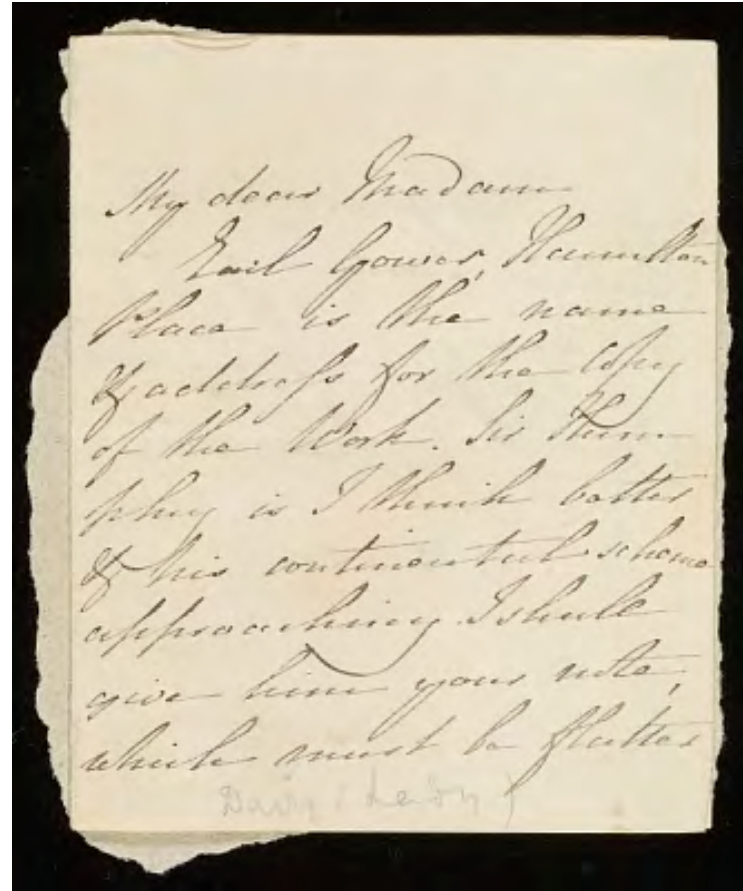 My dear Madam
Earl Gower, Hamilton
Place is the name
& address for the Copy
of the Work. Sir Hum
phry is I think better
& his continental scheme
approaching. I shall
give him your note,
which must be flatter
Davy (Lady)